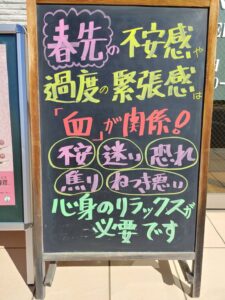 春先の不安感や
過度の緊張感は
「血」が関係!
不安 迷い 恐れ
焦り ねつき悪い
心身のリラックスが
必要です